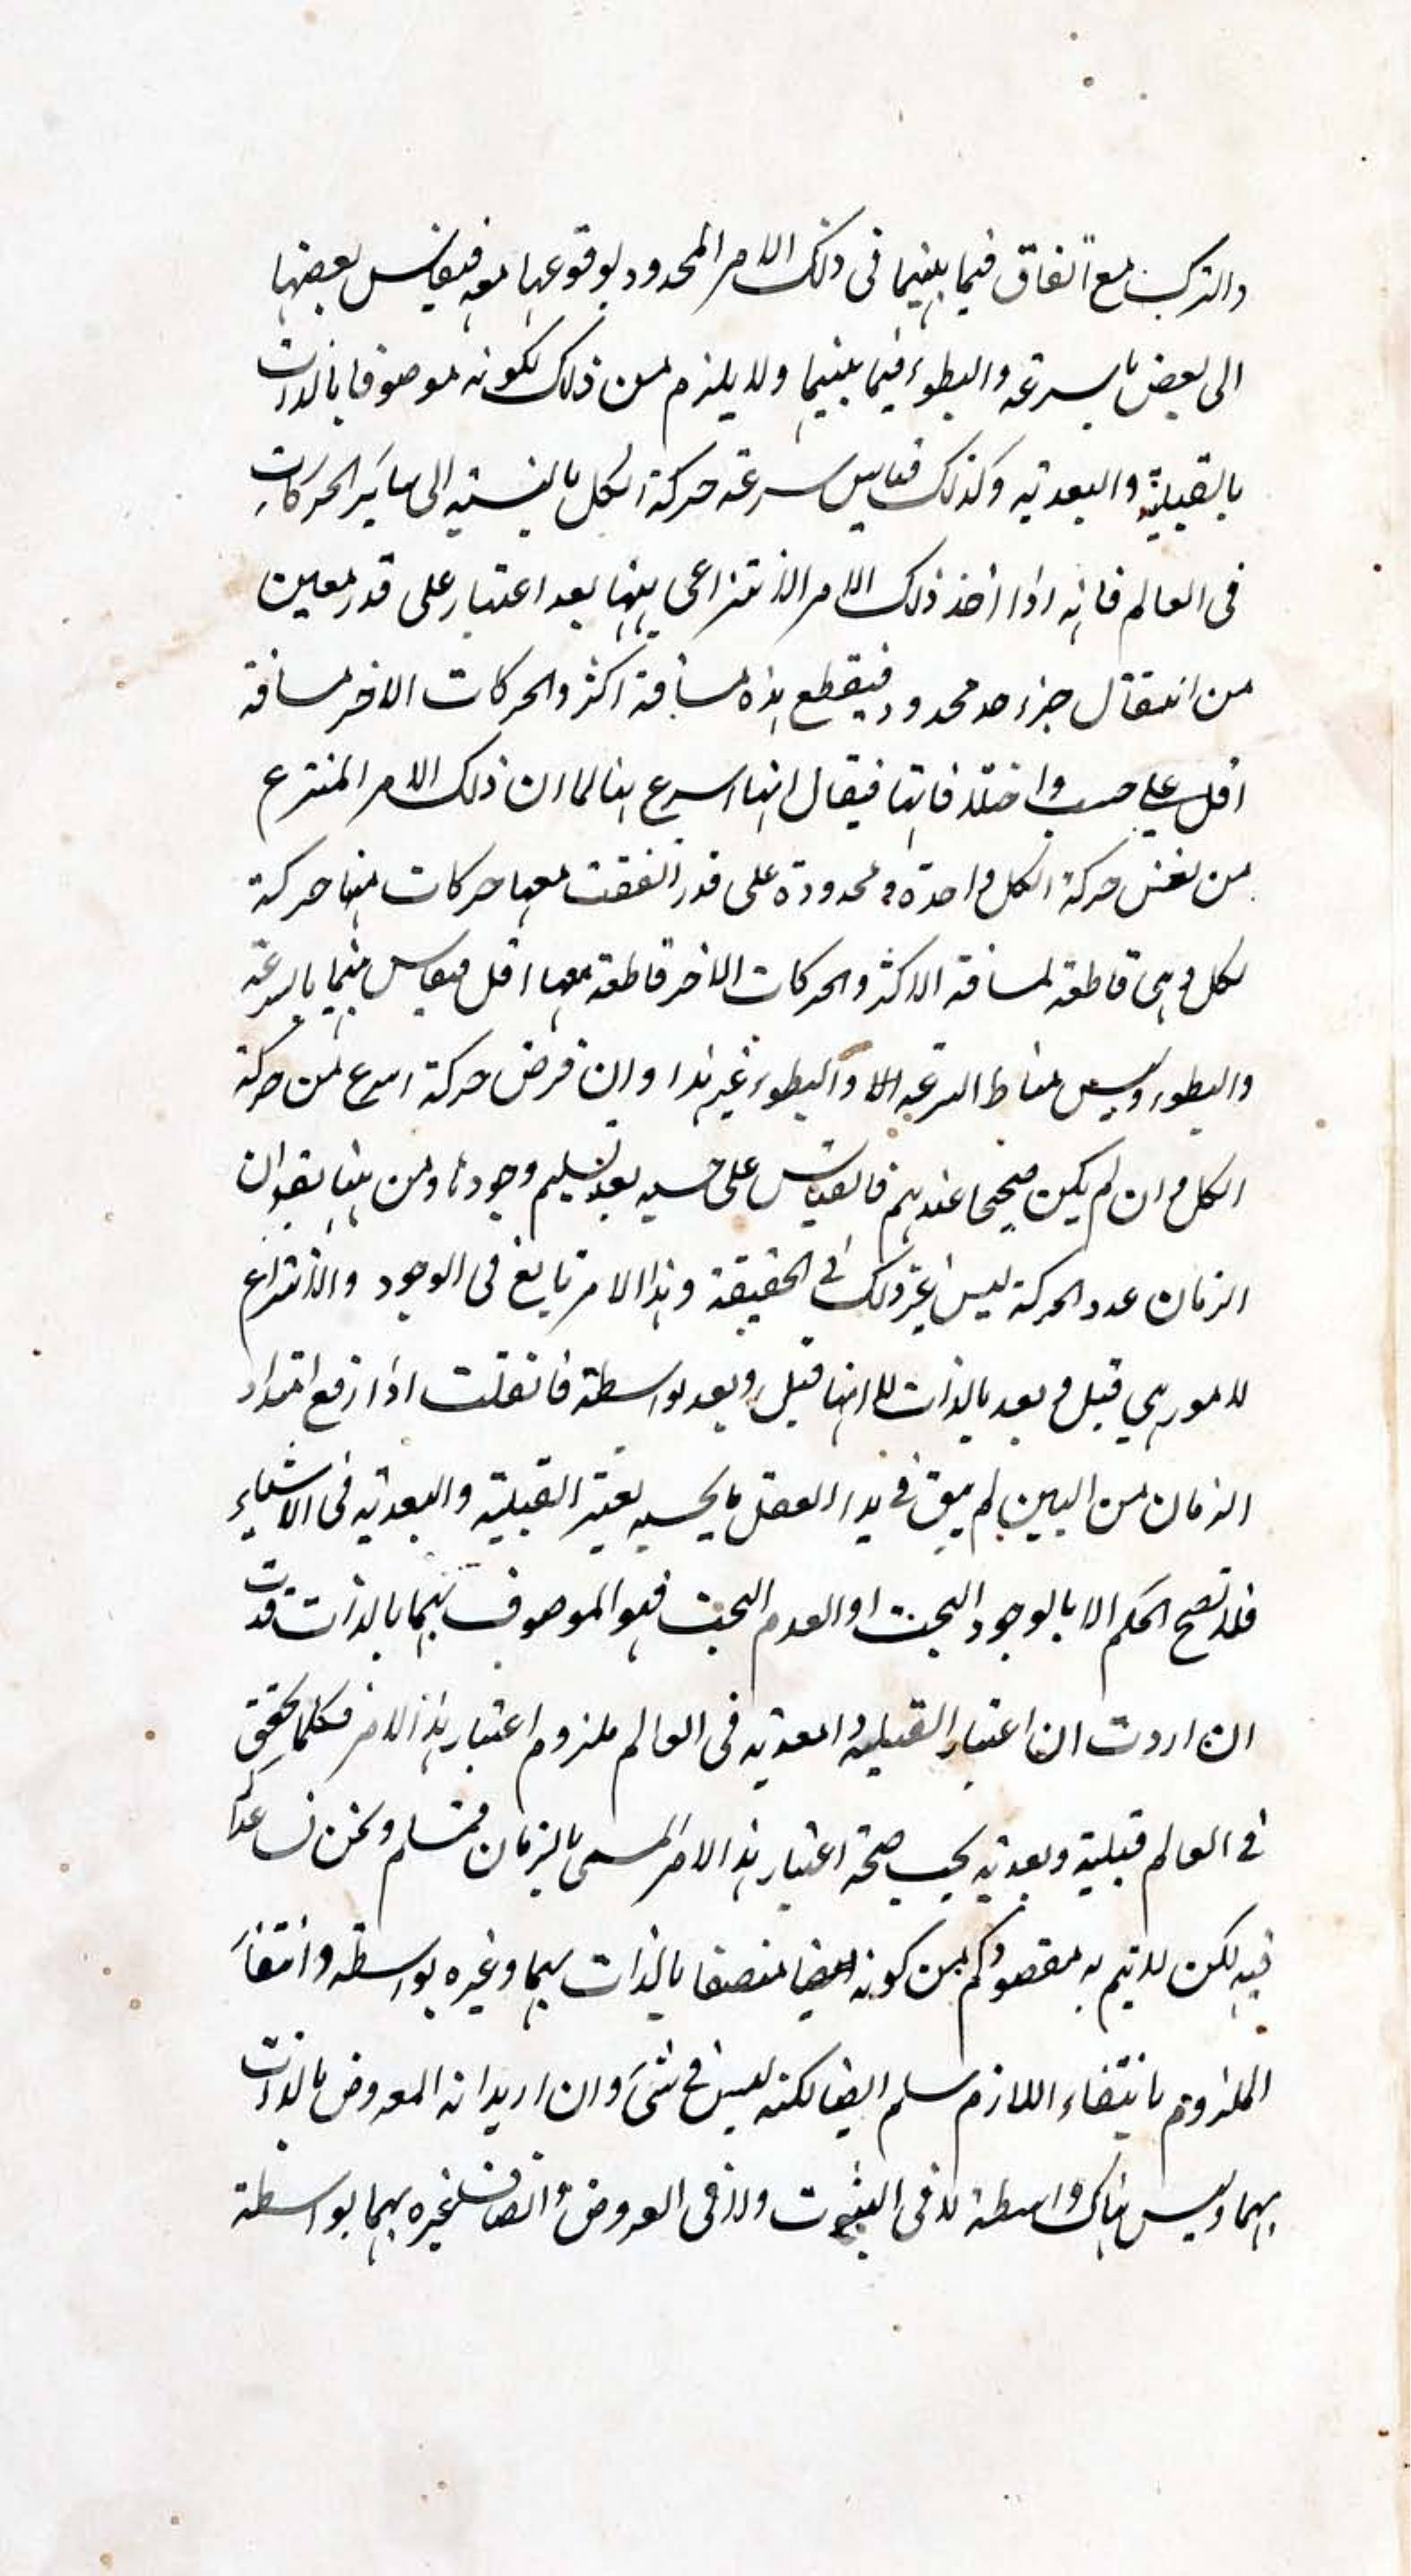 والترك مع اتفاق فيما بينهما فى ذلك الامر المحدود بوقوعها معه فيقايس بعضها
الى بعض بالسرعة والبطوء فيما بينهما ولا يلزم من ذلك كونه موصوفا بالذات
بالقبلية والبعدية وكذلك فقايس سرعة حركة الكل بالنسبة الى سائر الحركات
فى العالم فانه اذا اخذ ذلك الامر الانتزاعى بينها بعد اعتبار على قدر معين
من انتقال جزء حد محدود فيقطع هذه مسافة اكثر والحركات الاخر مسافة
اقل على حسب اختلافاتها فيقال انها اسرع منها لما ان ذلك الامر المنتزع
من نفس حركة الكل واحدة ومحدودة على قدر اتفقت معها حركات منها حركة
لكل وهى قاطعة لمسافة الاكثر والحركات الاخر قاطعة معها اقل فيقايس بينهما بالسرعة
والبطوء وليس مناط السرعة والبطوء غير هذا وان فرض حركة اسرع من حركة
الكل وان لم يكن صحيحا عندهم فالقياس على حسبه بعد تسليم وجودها ومن هنا يقول ان
الزمان عدد الحركة ليس غير ذلك فى الحقيقة وهذا الامر تابع فى الوجود والانتزاع
لامور هي قبل وبعد بالذات لا انها قبل وبعد بواسطة فان قلت اذا رفع امتداد
الزمان من البين لم يبق فى يد العقل ما يحسبه يعتبر القبلية والبعدية فى الاشياء
فلا تصح الحكم الا بالوجود البحت او العدم البحت فهو الموصوف بهما بالذات قلت
ان اردت ان اعتبار القبلية والبعدية فى العالم ملزوم اعتبار هذا الامر فكلما تحقق
فى العالم قبلية وبعدية يجب صحة اعتبار هذا الامر المسمى بالزمان فمسلم ونحن نساعدكم
فيه لكن لا يتم به مقصودكم من كونه ايضا متصفا بالذات بهما وغيره بواسطة وانتفاء
الملزوم بانتفاء اللازم مسلم ايضا لكنه ليس فى شئ وان اريد انه المعروض بالذات
بهما وليس هناك واسطة لا فى الثبوت ولا فى العروض واتصاف غيره بهما بواسطة